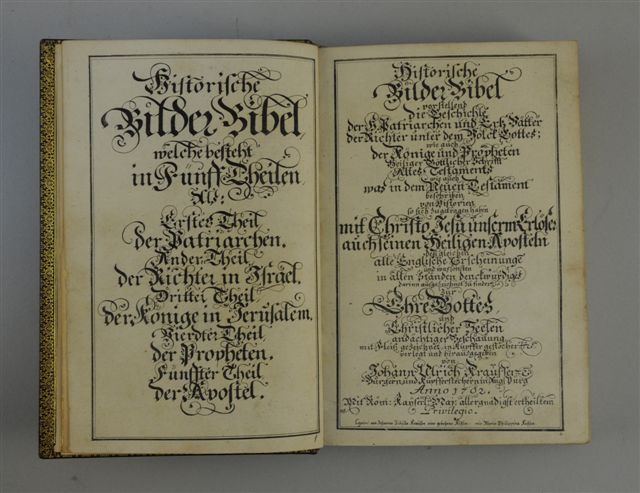 Historische
Bilder Bibel,
welche besteht
in Fünff Theilen,
Als:
Erstes Theil
der Patriarchen.
Ander Theil
der Richter in Israel.
Dritter Theil
der Könige in Jerusalem.
Vierdter Theil
der Propheten.
Funffter Theil
der Apostel.
Historische
Bilder Bibel
vorstellend
die Geschichte
der H. Patriarchen und Ertz Vätter
der Richter unter dem Volck Gottes;
wie auch
der Könige und Propheten
Heiliger Göttlicher Schrifft
Altes Testaments
wie auch
was in dem Neuen Testament
beschriben
von Historien
so sich zugetragen haben
mit Christo Jesu unserm Erlöser
auch seinen Heiligen Aposteln
den gleichen
alle Englische Erscheinunge
und was sonsten
in allen Ständen denckwürdiges
darinn aufgezeichnet zu finden
zur
Ehre Gottes
und
Christlicher Seelen
andächtiger Beschauung
mit Fleiß gezeichnet in Kupffer gestochen
verlegt und herausgegeben
von
Johann Ulrich Kraussen
Burgern und Kupfferstechern in Augspurg
Anno 1702.
Mit Röm: Kayserl: May: allergnädigst ertheiltem
Privilegio.